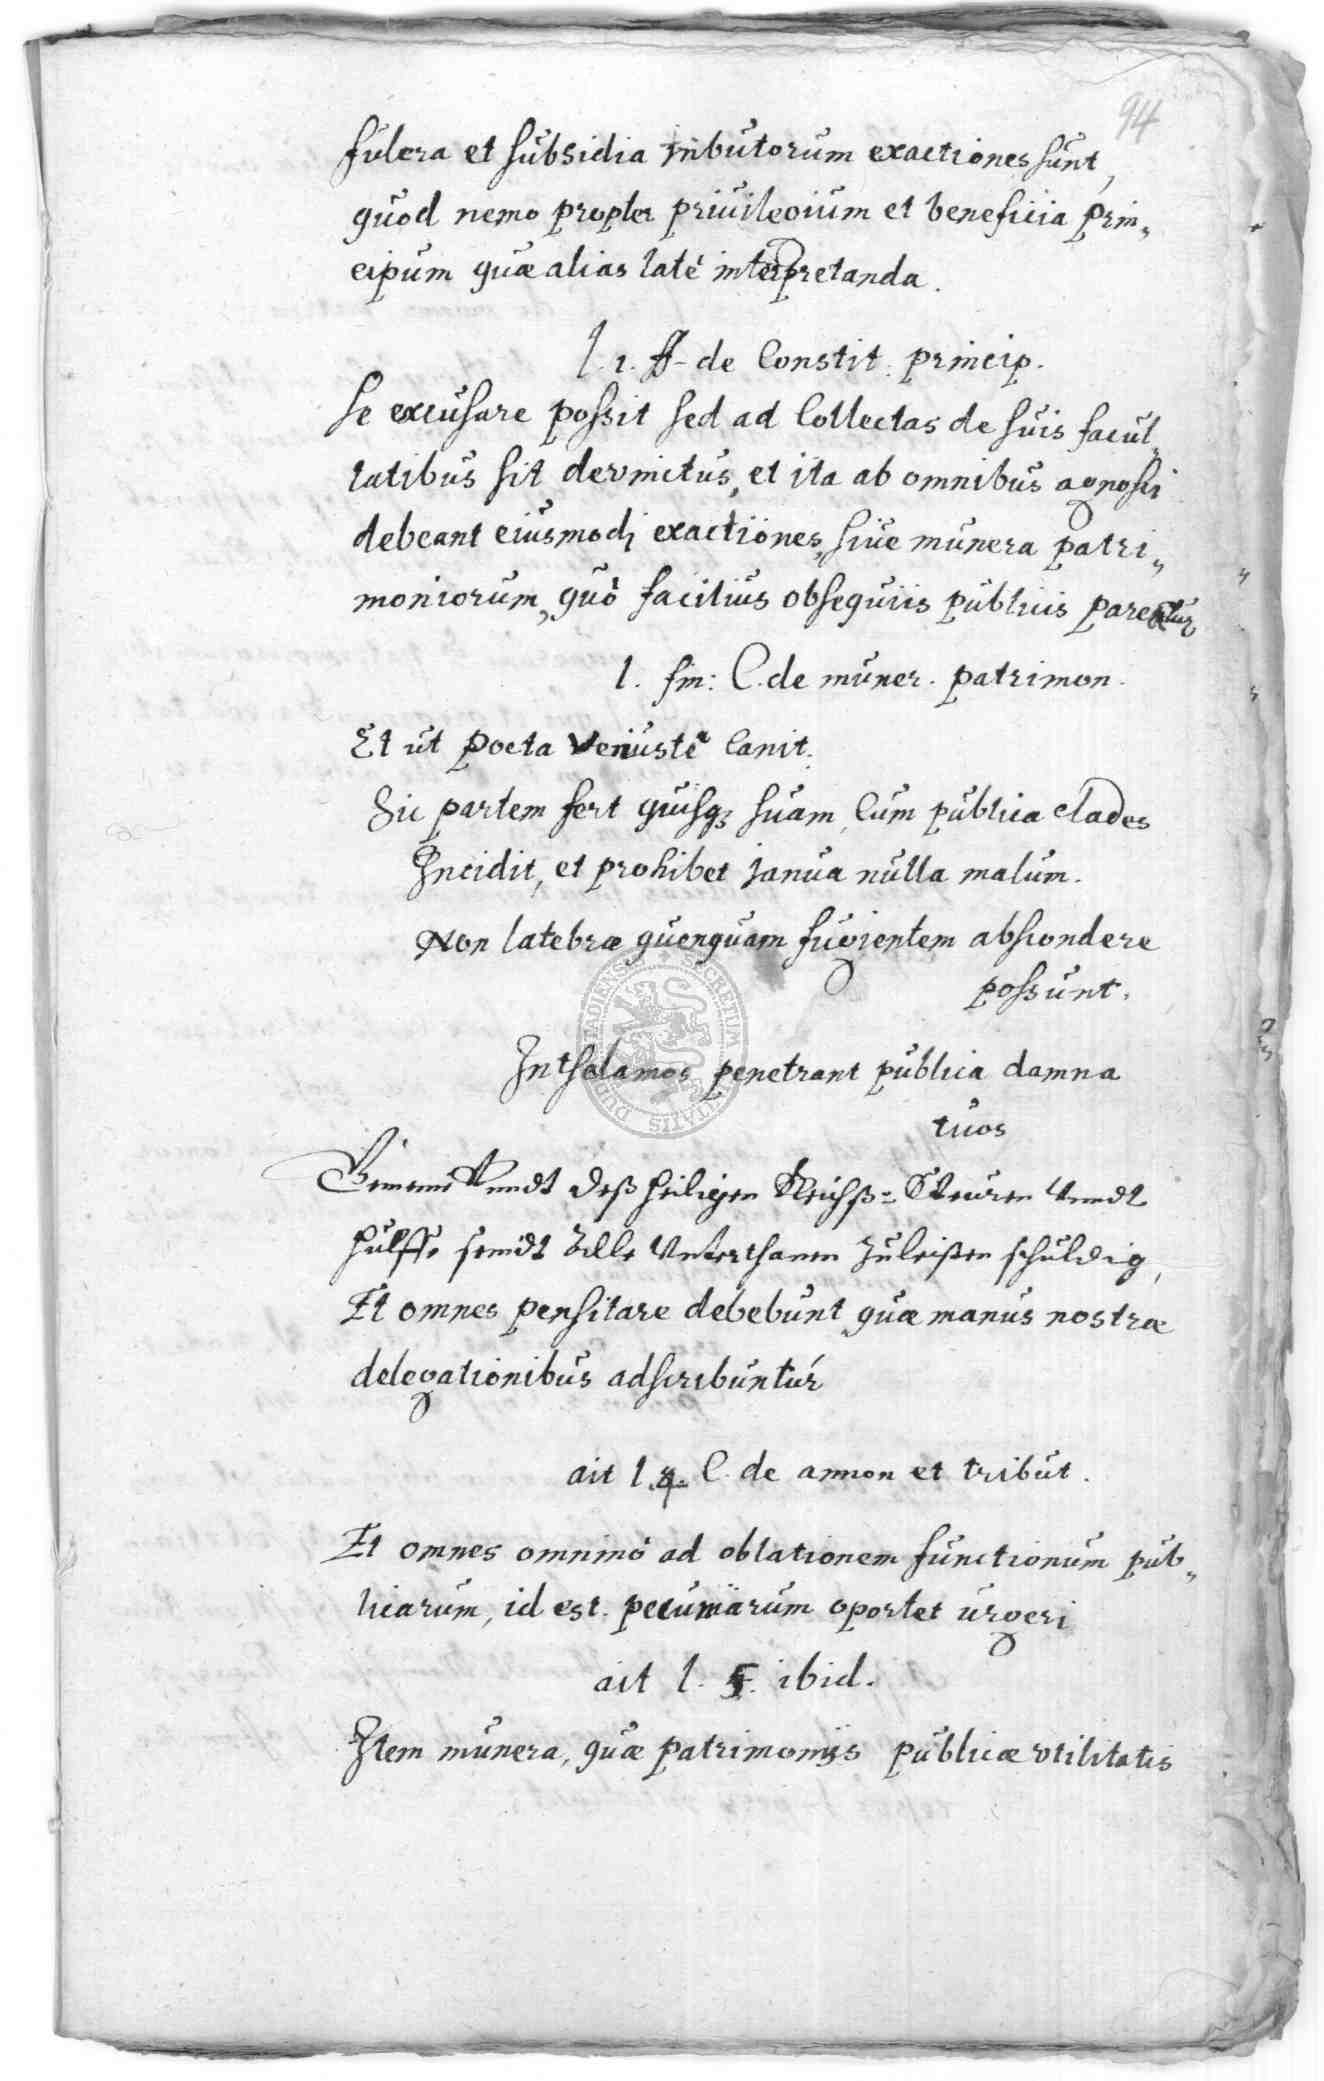 94
fulcra et subsidia tributorum exactiones sunt,
quod nemo propter priuilegium et beneficia prin„
cipum quæ alias latè interpretanda.
l. 1. ff. de Constit. princip.
se excusare possit sed ad Collectas de suis facul„
tatibus sit devinctus, et ita ab omnibus agnosci
debeant eiusmodi exactiones, siue munera patri„
moniorum, quò facilius obsequiis publicis paretur
l. fin: C. de muner. patrimon.
Et ut poeta venustè Canit.
Sic partem fert quisq3 suam, Cum publica clades
Incidit, et prohibet janua nulla malum.
Non latebræ quenquam fugientem abscondere
possunt.
In thalamos penetrant publica damna
tuos
Gemeine Vnndt deß heiligen Reichß= Steuren Vnndt
hülffe seindt Alle Vnterthanen zuleisten schuldig,
Et omnes pensitare debebunt quæ manus nostræ
delegationibus adscribuntur
ait l. 4. C. de annon et tribut.
Et omnes omninò ad oblationem functionum pub„
licarum, id est. pecuniarum oportet urgeri
ait l. 5. ibid.
Item munera, quæ patrimonijs publicæ vtilitatis
SECRETUM CIVITATIS